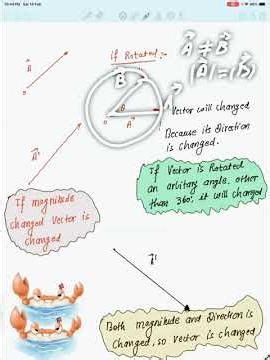 10:44 PM Sat 18 Feb
If Rotated:-
A⃗ ≠ B⃗
|A⃗| = |B⃗|
A⃗
B
θ
O
A⃗
Vector will changed
Because its direction
is changed.
O
A⃗'
If Vector is Rotated
an arbitary angle other
than 360°, it will changed
If magnitude
changed vector is
changed
Both magnitude and Direction is
Changed, so vector is changed